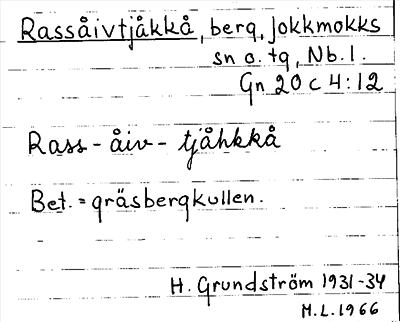 Rassåivtjåkkå, berg, Jokkmokks
sn o. tg, Nb. l.
Gn 20 C 4:12
Rass - åiv - tjåhkkå
Bet. = gräsbergkullen.
H. Grundström 1931-34
M.L. 1966